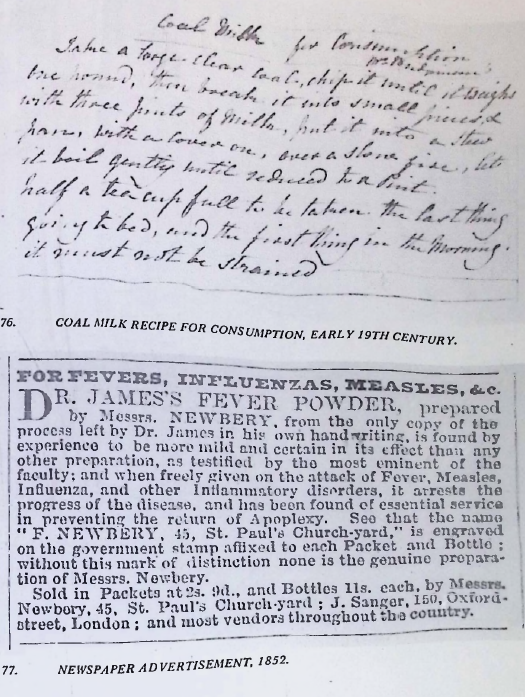 Coal Milk for Consumption
Take a large clear coal, chip it until it weighs
one pound, then break it into small pieces, &
with three pints of Milk, put it into a stew
pan, with a cover on, over a slow fire, let
it boil gently until reduced to a Pint.
half a tea cup full to be taken the last thing
going to bed, and the first thing in the Morning.
it must not be strained
76. COAL MILK RECIPE FOR CONSUMPTION, EARLY 19TH CENTURY.
FOR FEVERS, INFLUENZAS, MEASLES, &c.
DR. JAMES'S FEVER POWDER, prepared
by Messrs. NEWBERY, from the only copy of the
process left by Dr. James in his own handwriting, is found by
experience to be more mild and certain in its effect than any
other preparation, as testified by the most eminent of the
faculty; and when freely given on the attack of Fever, Measles,
Influenza, and other Inflammatory disorders, it arrests the
progress of the disease, and has been found of essential service
in preventing the return of Apoplexy. See that the name
"F. NEWBERY, 45, St. Paul's Church-yard," is engraved
on the government stamp affixed to each Packet and Bottle;
without this mark of distinction none is the genuine prepara-
tion of Messrs. Newbery.
Sold in Packets at 2s. 9d., and Bottles 11s. each, by Messrs.
Newbery, 45, St. Paul's Church-yard; J. Sanger, 150, Oxford-
street, London; and most vendors throughout the country.
77. NEWSPAPER ADVERTISEMENT, 1852.